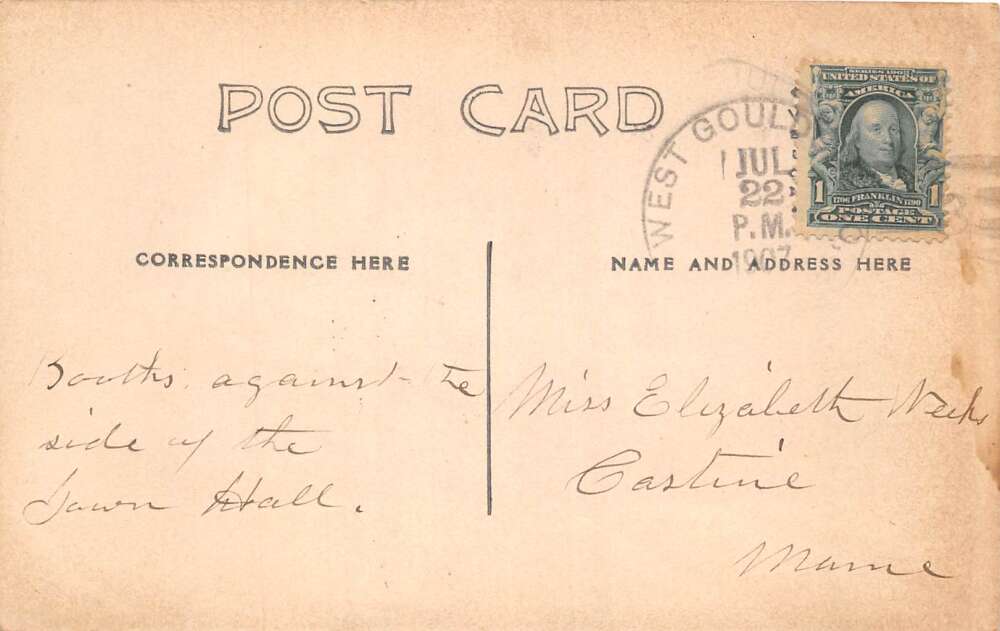 POST CARD
WEST GOULD
JUL
22
P.M.
1907
SERIES 1902
UNITED STATES OF
AMERICA
1 1706 FRANKLIN 1790 1
POSTAGE
ONE CENT
CORRESPONDENCE HERE
NAME AND ADDRESS HERE
Booths against the
side of the
Town Hall.
Miss Elizabeth Weeks
Castine
Maine